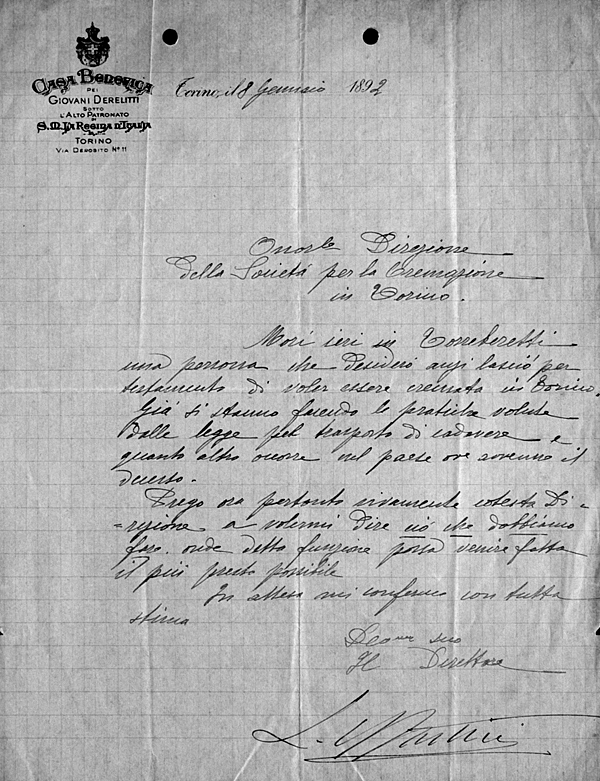 CASA BENEFICA
PEI
GIOVANI DERELITTI
SOTTO
L'ALTO PATRONATO
DI
S. M. LA REGINA D'ITALIA
TORINO
VIA DEPOSITO Nº 11
Torino, il 8 Gennaio 1892
Onorle Direzione
della Società per la Cremazione
in Torino.
Morì ieri in Torreberetti
una persona che desiderò anzi lasciò per
testamento di voler essere cremata in Torino.
Già si stanno facendo le pratiche volute
dalle legge pel trasporto di cadavere e
quanto altro occorre nel paese ove avvenne il
decesso.
Prego ora pertanto vivamente cotesta Di=
=rezione a volermi dire ciò che dobbiamo
fare onde detta funzione possa venire fatta
il più presto possibile
In attesa mi confermo con tutta
stima
suo
Il Direttore
L.